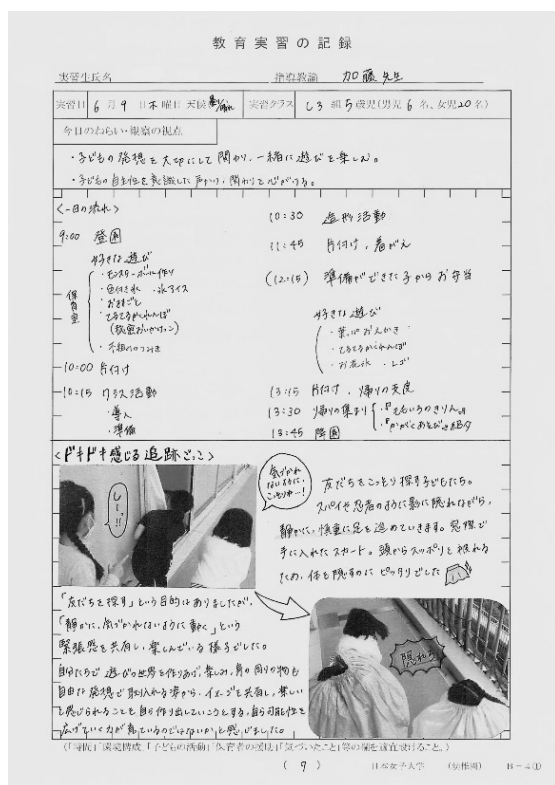 教育実習の記録
実習生氏名 指導教諭 加藤 先生
実習日 6月9日木曜日 天候 晴れ 実習クラス 組5歳児(男児6名、女児20名)
今日のねらい・観察の視点
・子どもの発想を大切にして関わり、一緒に遊びを楽しむ。
・子どもの自主性を意識した声かけ、関わりを心がける。
<一日の流れ>
9:00 登園
好きな遊び
保育室
・モンスターボール作り
・色付き氷 ・氷アイス
・おままごと
・てるてるかくれんぼ
(秘密おいかけっこ)
・つみき
10:00 片付け
10:15 クラス活動
・導入
・準備
10:30 造形活動
11:45 片付け、着がえ
(12:15) 準備ができた子からお弁当
好きな遊び
・葉っぱおえかき
・てるてるかくれんぼ
・お流氷 ・レゴ
13:15 片付け、帰りの支度
13:30 帰りの集まり ・『ももいろのきりん』
・『かがくあそび』紹介
13:45 降園
<ドキドキ感じる追跡ごっこ>
しーっ!!
気づかれ
ないように、
こっそりゆー!
友だちをこっそり探す子どもたち。
スパイや忍者のように影に隠れながら、
静かに、慎重に足を進めていきます。忍捜で
手に入れたスカート。頭からスッポリと被れる
ため、体を隠すのにピッタリでした
「友だちを探す」という目的はありましたが、
「静かに、気づかれないように動く」という
緊張感を共有し、楽しんでいる様子でした。
自分たちで遊びの世界を作りあげ、楽しみ、身の周りの物も
自由な発想で取り入れる姿から、イメージを共有し、楽しい
と感じられることを自ら作り出していこうとする、自ら可能性を
広げていく力が育っているのではないかと感じました。
隠れろ
(「時間」「環境構成」「子どもの活動」「保育者の援助」「気づいたこと」等の欄を適宜設けること。)
( 9 ) 日本女子大学 (幼稚園) B-4(1)